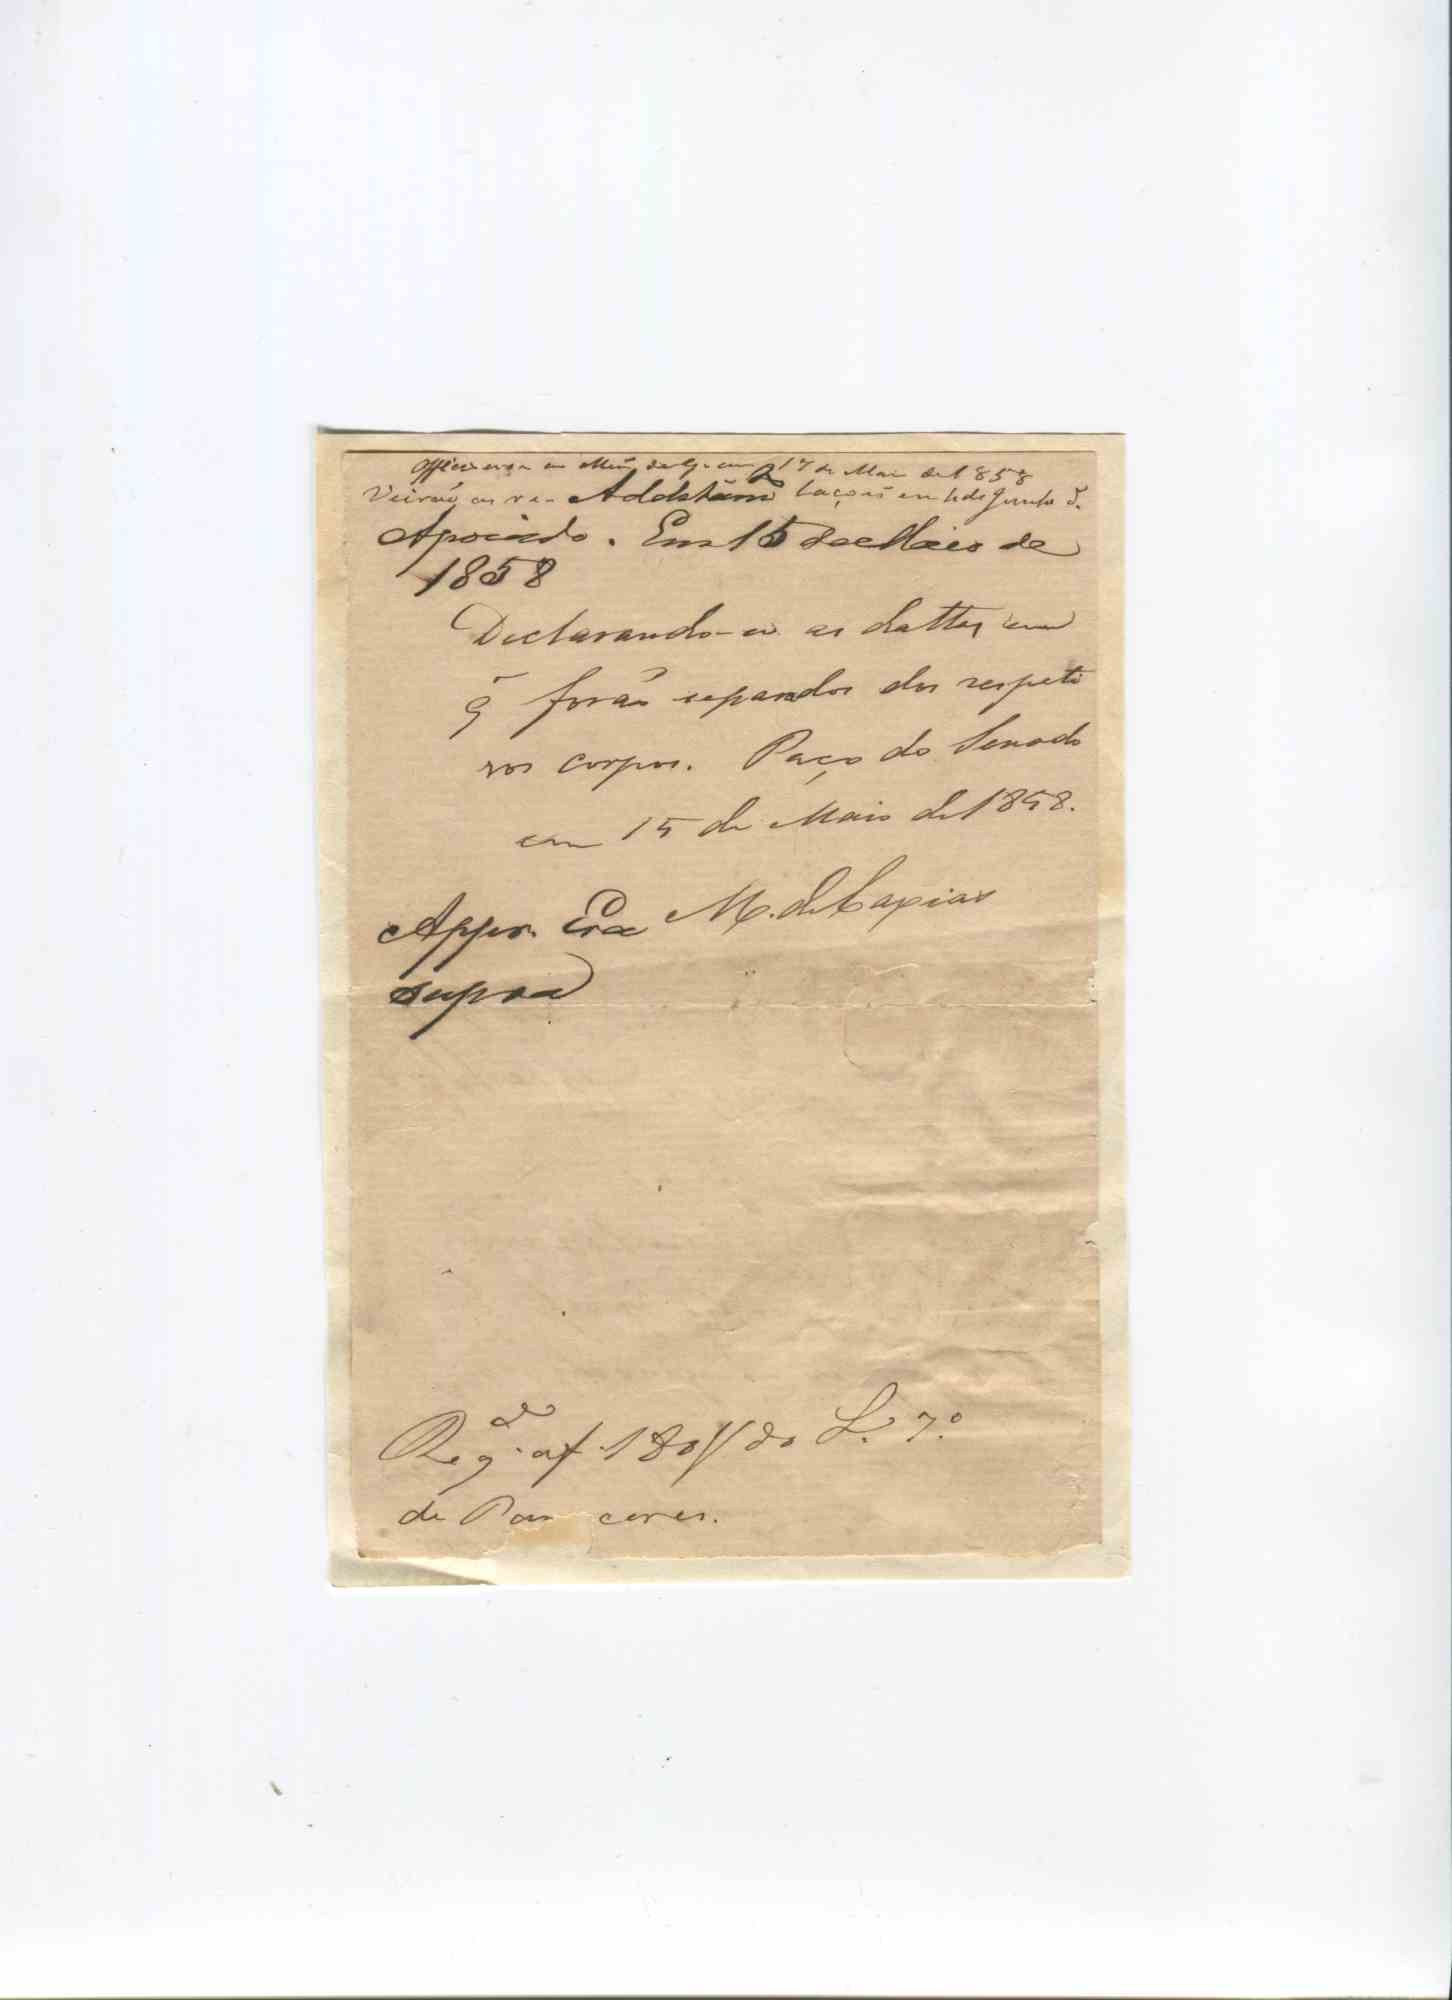 Officiou-se ao Min. da G. em 17 de Maio de 1858
Vierão as re- Additam.to lações em 4 de Junho d.
Apoiado. Em 15 de Maio de
1858
Declarando-se as dattas em
q̃ forão separados dos respecti
vos corpos. Paço do Senado
em 15 de Maio de 1858.
M. de Caxias
Appr. Era
supra
Reg.do a f 180 V do L. 7.º
de Pareceres.